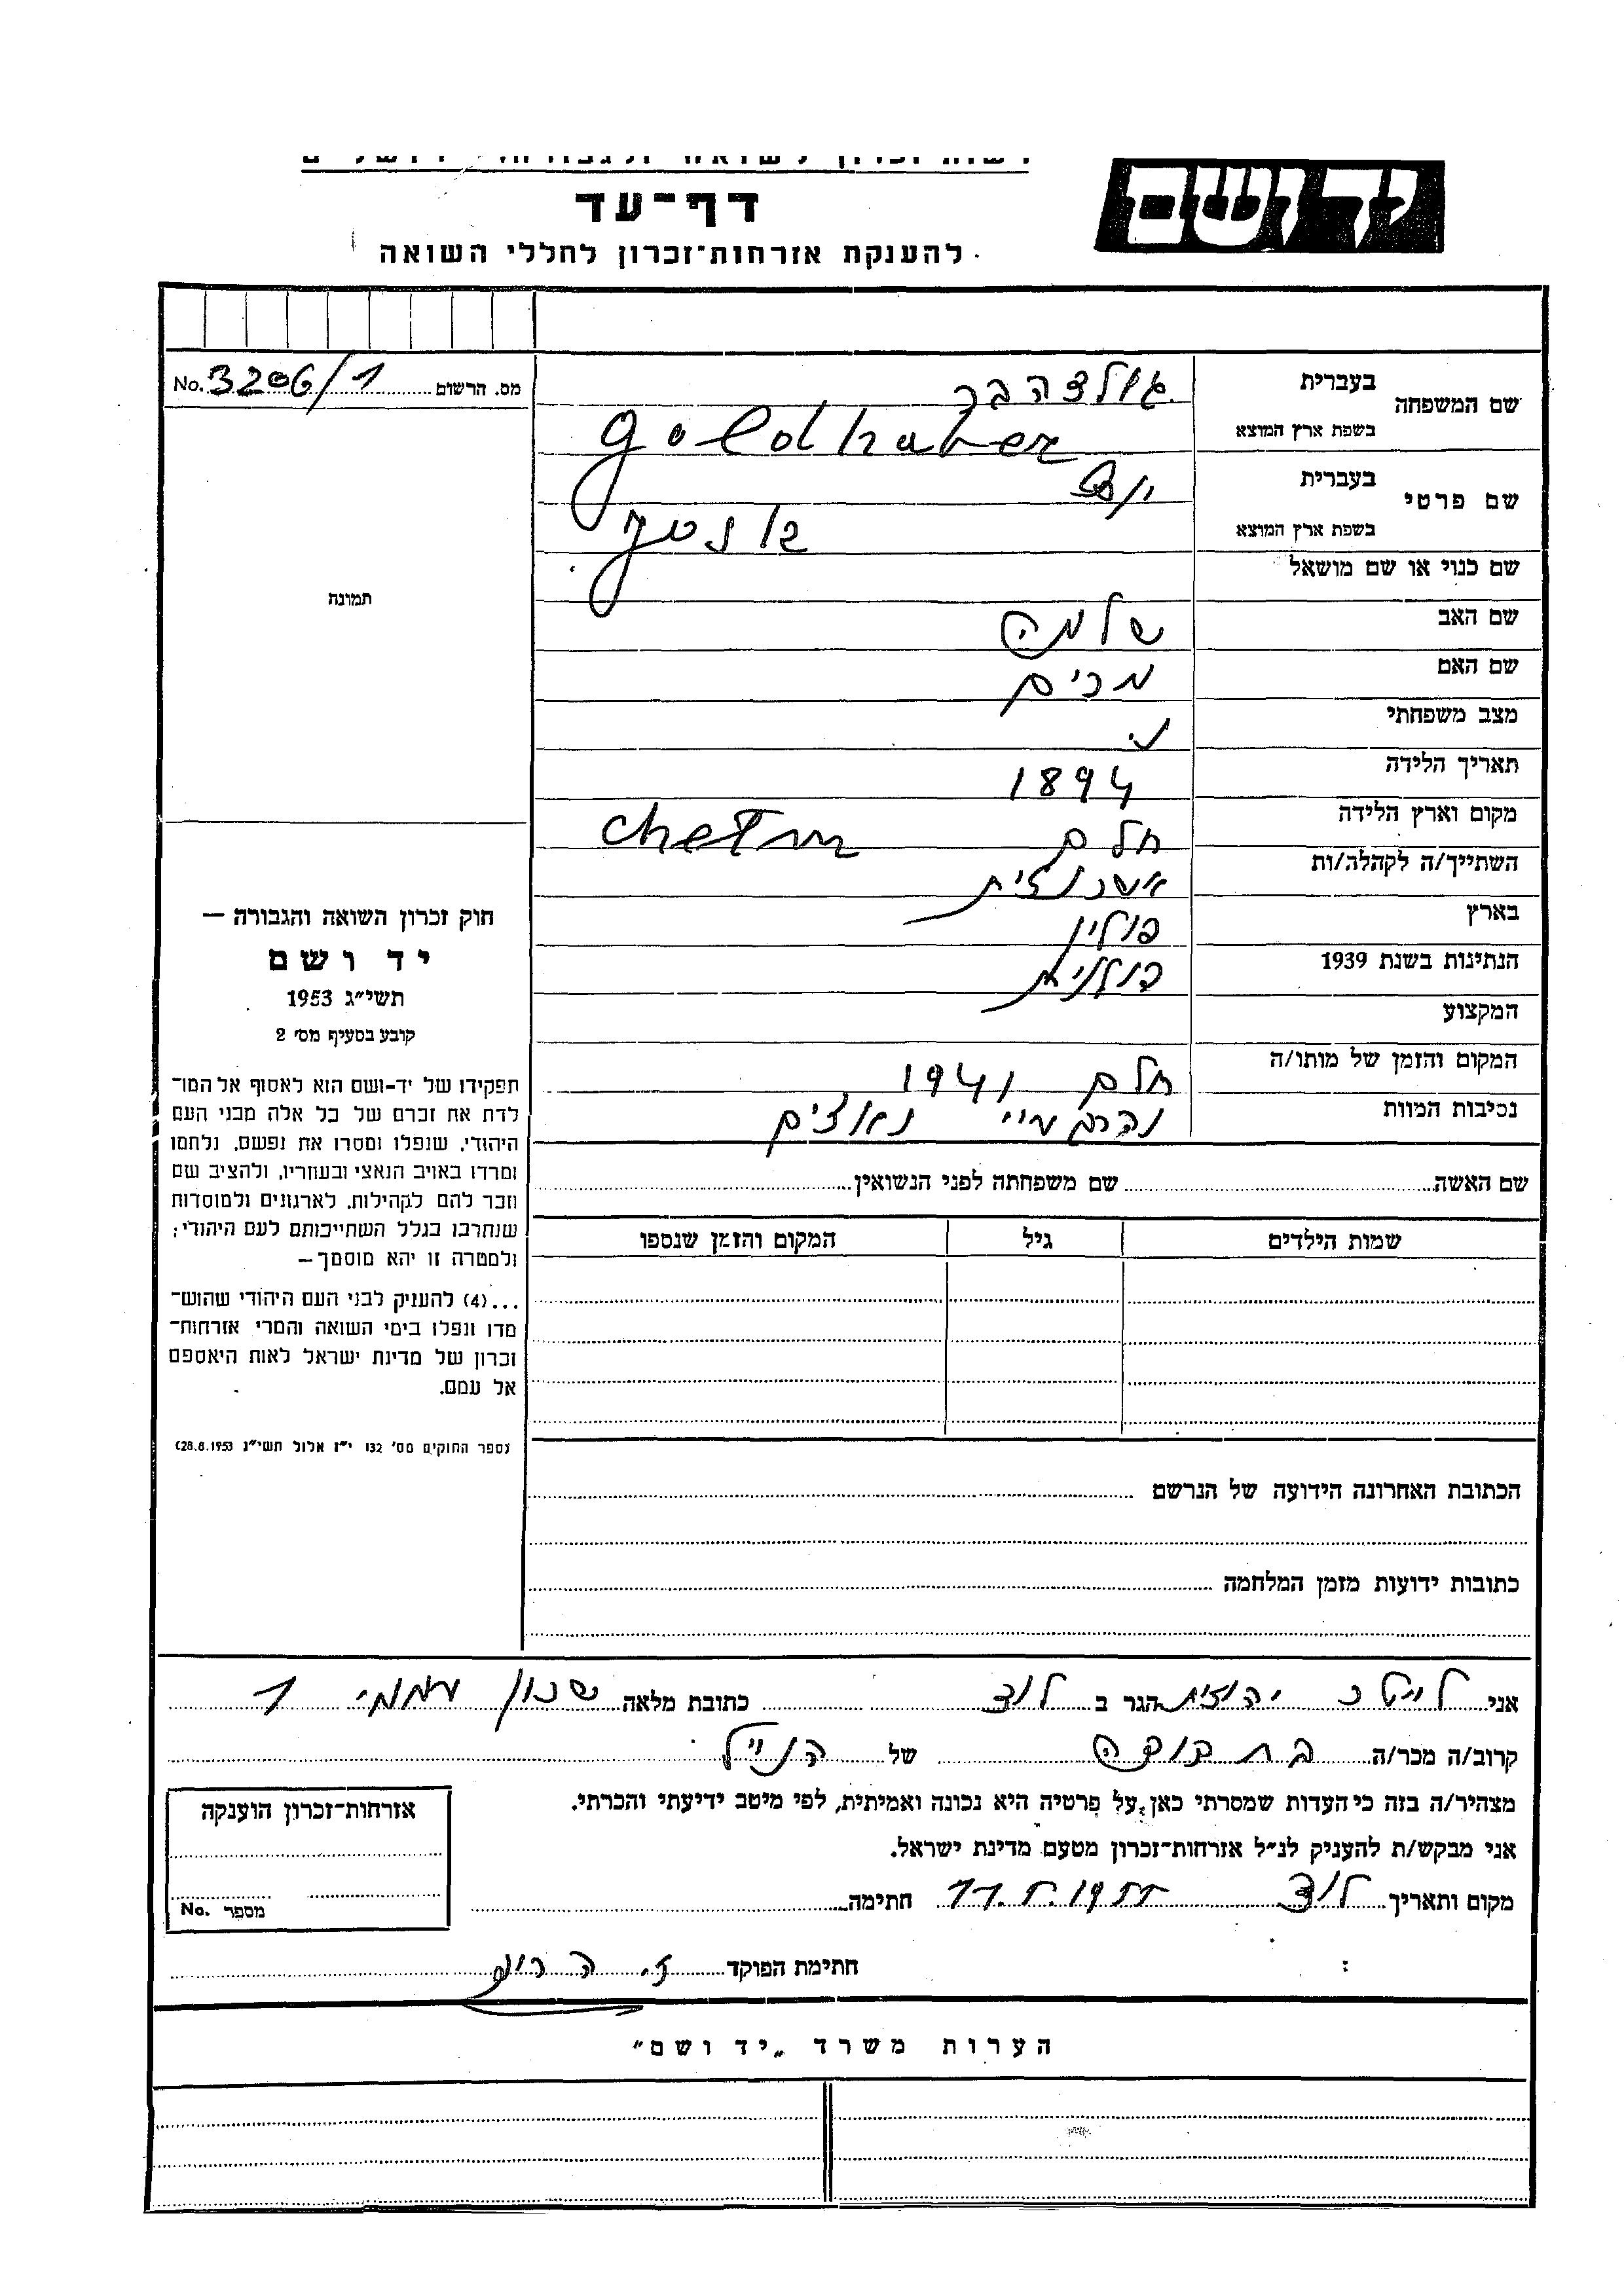 יד ושם
דף־עד
להענקת אזרחות־זכרון לחללי השואה
שם המשפחה
בעברית
גולצהבר
בשפת ארץ המוצא
Goldhaber
שם פרטי
בעברית
יוסף
בשפת ארץ המוצא
שם כנוי או שם מושאל
שם האב
שלמה
שם האם
מרים
מצב משפחתי
נ.
תאריך הלידה
1894
מקום וארץ הלידה
חלם Chełm
השתייך/ה לקהלה/ות
אשכנזית
בארץ
פולין
הנתינות בשנת 1939
פולנית
המקצוע
המקום והזמן של מותו/ה
חלם 1941
נסיבות המוות
נהרג ע״י נאצים
שם האשה שם משפחתה לפני הנשואין
שמות הילדים גיל המקום והזמן שנספו
הכתובת האחרונה הידועה של הנרשם
כתובות ידועות מזמן המלחמה
מס. הרשום No. 3206/1
תמונה
חוק זכרון השואה והגבורה —
יד ושם
תשי״ג 1953
קובע בסעיף מס׳ 2
תפקידו של יד-ושם הוא לאסוף אל המו־
לדת את זכרם של כל אלה מבני העם
היהודי, שנפלו ומסרו את נפשם, נלחמו
ומרדו באויב הנאצי ובעוזריו, ולהציב שם
וזכר להם לקהילות, לארגונים ולמוסדות
שנחרבו בגלל השתייכותם לעם היהודי;
ולמטרה זו יהא מוסמך —
...(4) להעניק לבני העם היהודי שהוש־
מדו ונפלו בימי השואה והמרי אזרחות־
זכרון של מדינת ישראל לאות היאספם
אל עמם.
(ספר החוקים מס׳ 132 י״ז אלול תשי״ג 28.8.1953)
אני יהודית הגר ב לוד כתובת מלאה שכון עממי 1
קרוב/ה מכר/ה של הנ״ל
מצהיר/ה בזה כי העדות שמסרתי כאן על פרטיה היא נכונה ואמיתית, לפי מיטב ידיעתי והכרתי.
אני מבקש/ת להעניק לנ״ל אזרחות־זכרון מטעם מדינת ישראל.
מקום ותאריך לוד 11.5.1955 חתימה
חתימת הפוקד
אזרחות־זכרון הוענקה
מספר No.
הערות משרד „יד ושם״